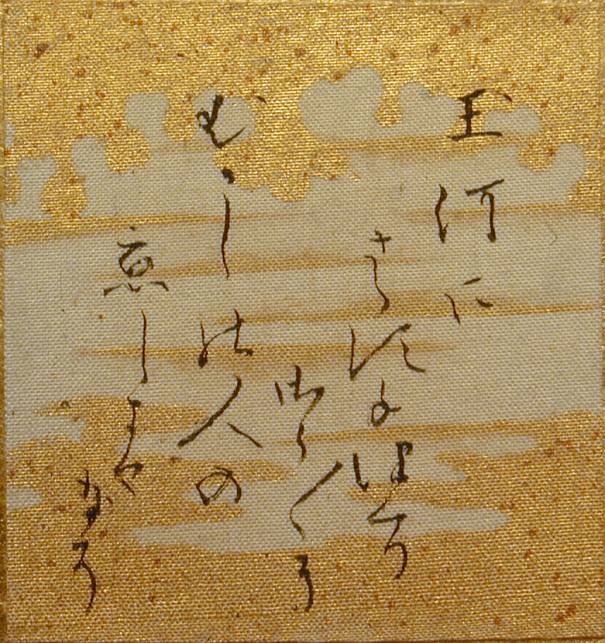 玉河に
さらすてつくり
さら〳〵に
むかしの人の
恋しきや
なそ